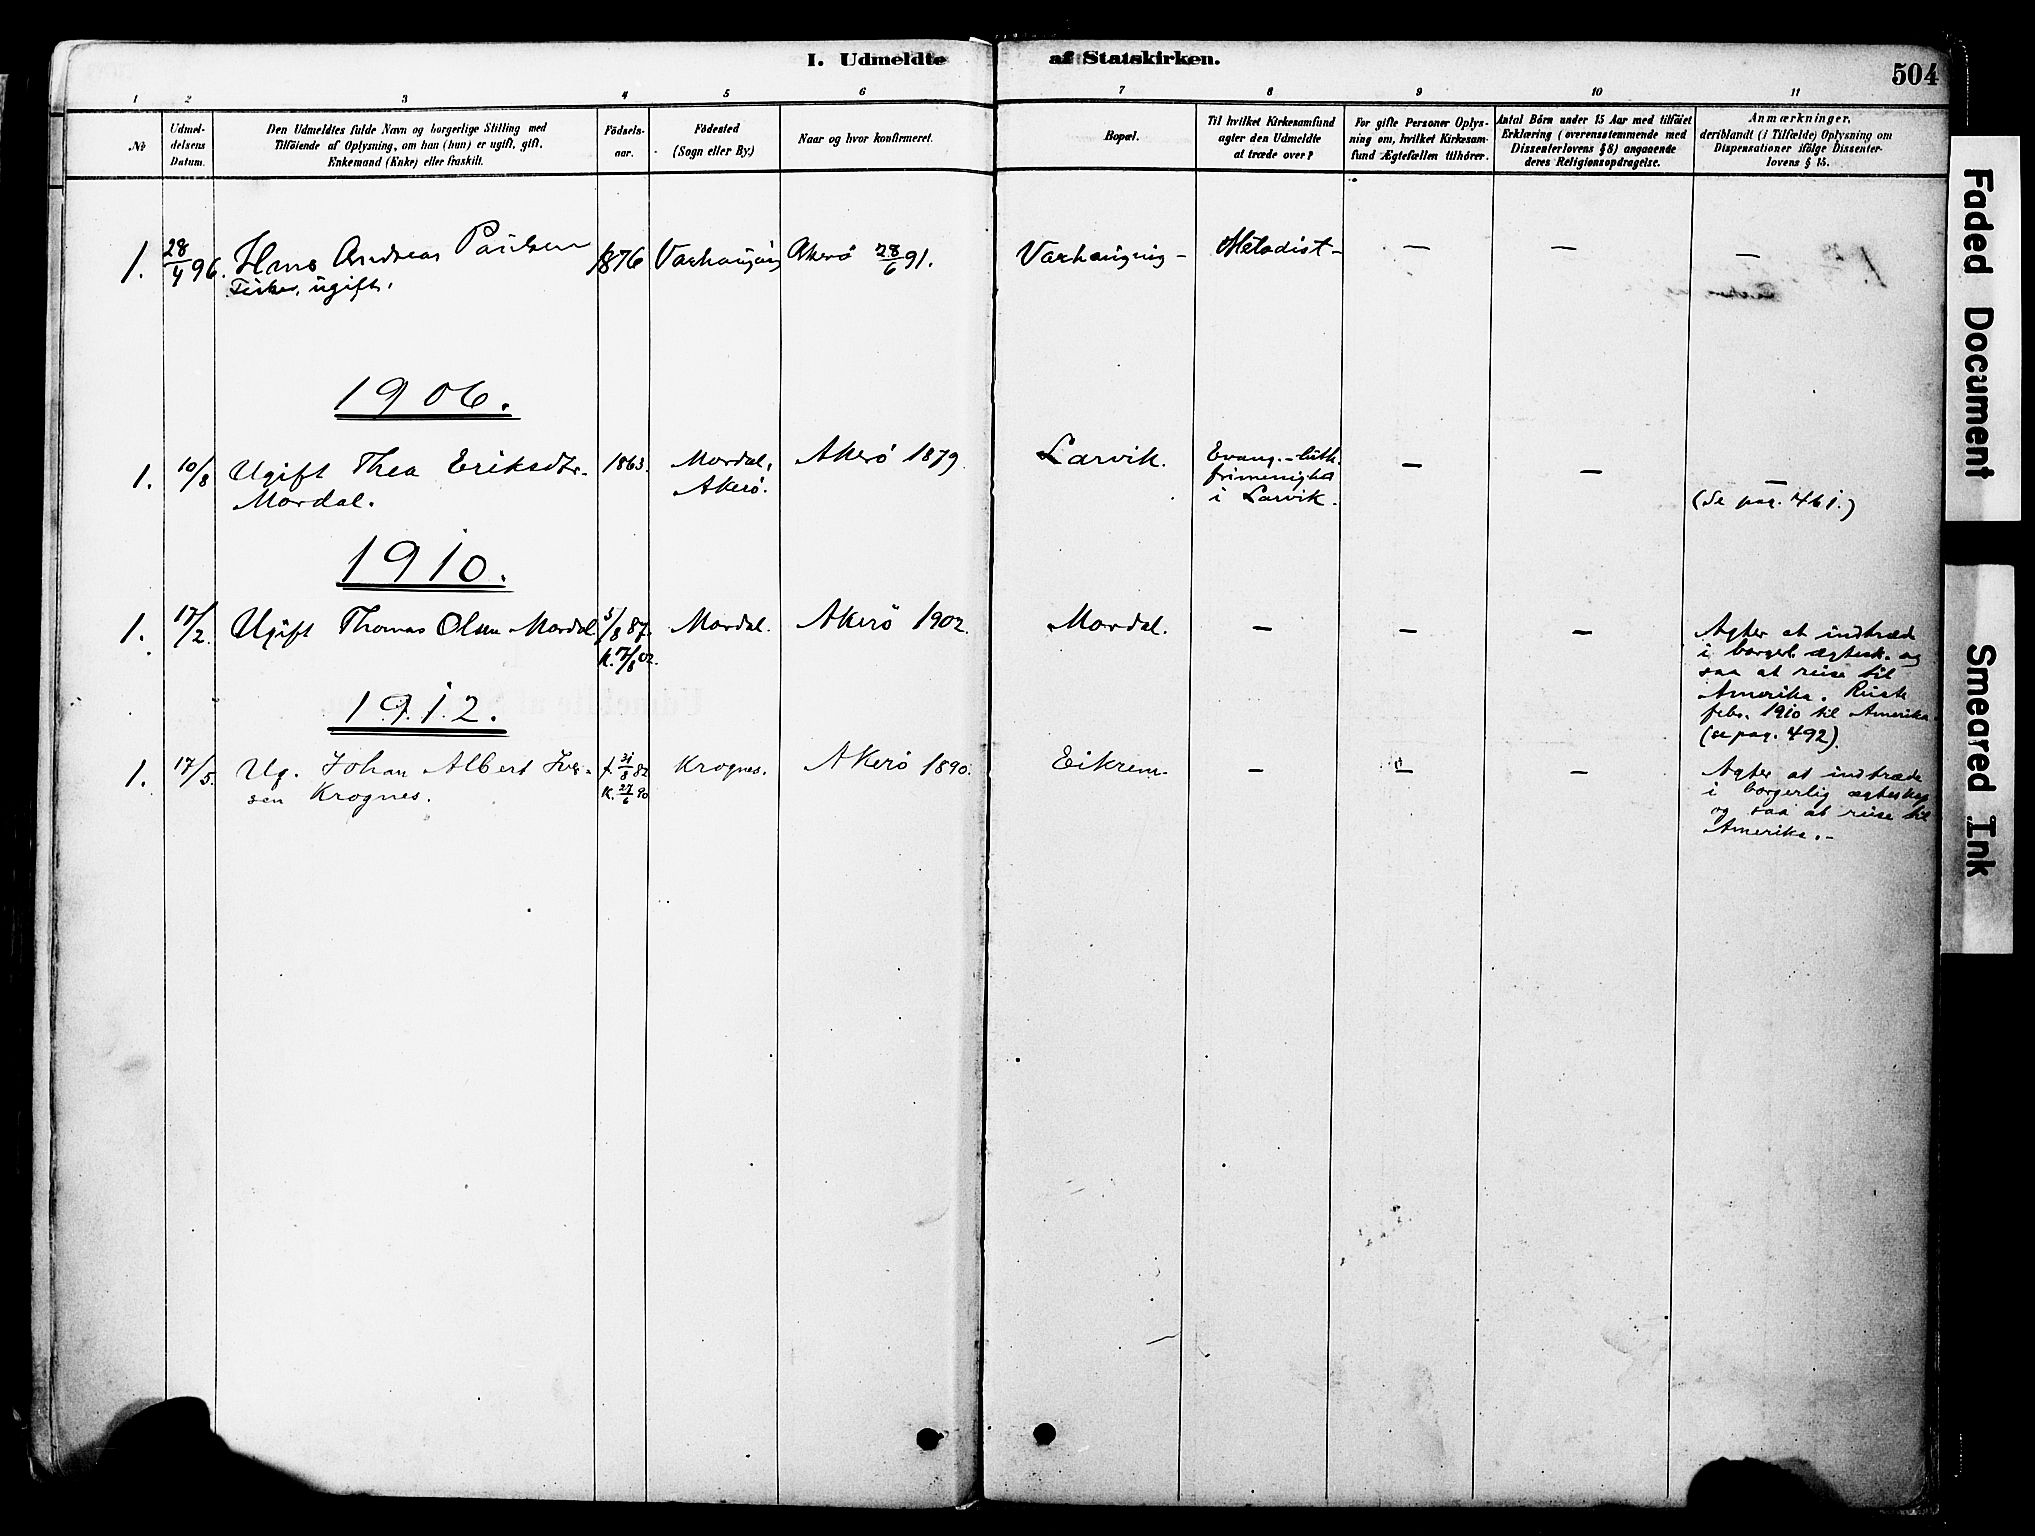 I. Udmeldte af Statskirken. 504
1 2 3 4 5 6 7 8 9 10 11
№
Udmel-
delsens
Datum.
Den Udmeldtes fulde Navn og borgerlige Stilling med
Tilföiende af Oplysning, om han (hun) er ugift, gift,
Enkemand (Enke) eller fraskilt.
Födsels-
aar.
Födested
(Sogn eller By.)
Naar og hvor konfirmeret.
Bopæl.
Til hvilket Kirkesamfund
agter den Udmeldte
at træde over?
For gifte Personer Oplys-
ning om, hvilket Kirkesam-
fund Ægtefællen tilhörer.
Antal Börn under 15 Aar med tilföiet
Erklæring (overensstemmende med
Dissenterlovens § 8) angaaende
deres Religionsopdragelse.
Anmærkninger,
deriblandt (i Tilfælde) Oplysning om
Dispensationer ifölge Dissenter-
lovens § 15.
1. 28/4 96. Hans Andreas Paulsen 1876 Varhaugvig Akerö 28/6 91. Varhaugvig - Metodist - — — —
Fisker, ugift.
1906.
1. 10/8 Ugift Thea Eriksdtr. 1863. Mordal, Akerö 1879. Larvik. Evang.-luth. — — —
Mordal. Akerö. frimenighed
i Larvik. (Se pag. 461.)
1910.
1. 17/2. Ugift Thomas Olsen Mordal 5/8 87. Mordal. Akerö 1902. Mordal. — — — Agter at indtræde
K. 7/8 02. i borgerl. ægtesk. og
saa at reise til
Amerika. Reiste
febr. 1910 til Amerika.
(se pag. 492).
1912.
1. 17/5. Ug. Johan Albert Iver- f. 31/8 82 Krognes. Akerö 1890. Eikrem. — — — Agter at indtræde
sen Krognes. K. 27/6 90 i borgerlig ægteskap
og saa at reise til
Amerika. -
Faded Document
Smeared Ink